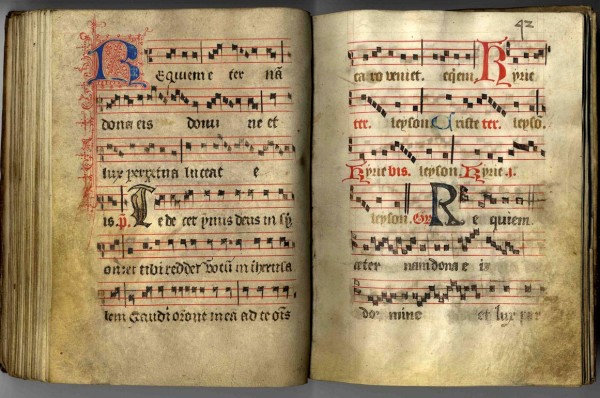 Requiem e ter nã
dona eis domi ne et
lux perpetua luceat e
is. p̄. Te de cet ymnus deus in sy
on et tibi reddet votũ in iherusa
lem Exaudi oronẽ meã ad te oĩs
42
caro veniet. Kyrie
ter. leyson. Criste ter. leyso.
Kyrie bis. leyson. Kyrie .i.
leyson. Gr̃ Re quiem
eter nam dona e is
do mine et lux per